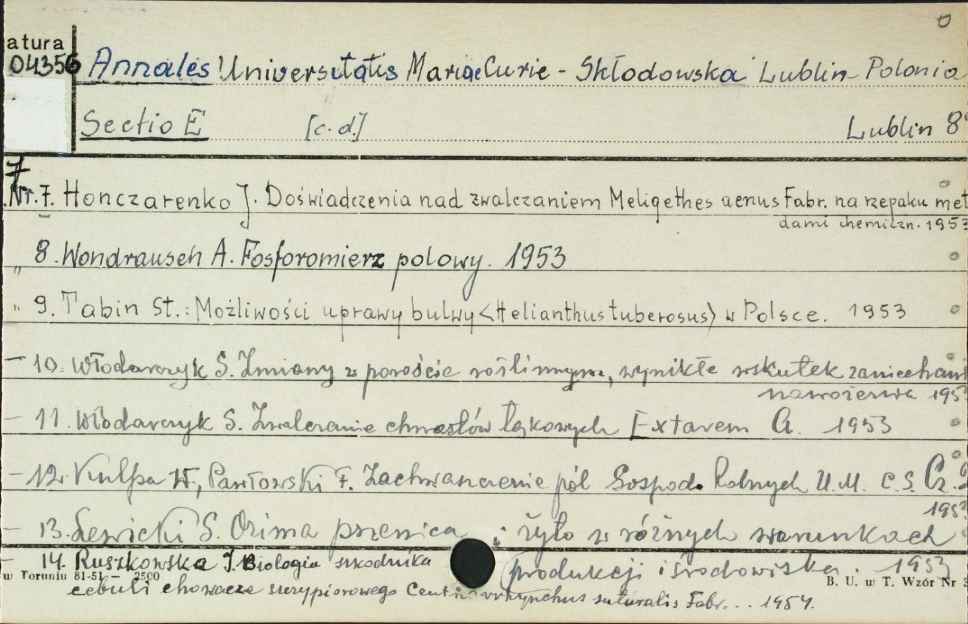 atura
04356 Annales Universitatis Mariae Curie - Skłodowska Lublin - Polonia
Sectio E [c.d.] Lublin 8°
7
Nr. 7. Honczarenko J. Doświadczenia nad zwalczaniem Meligethes aenus Fabr. na rzepaku met
dami chemiczn. 1953
" 8. Wondrausch A. Fosforomierz polowy. 1953
" 9. Tabin St.: Możliwości uprawy bulwy <Helianthus tuberosus> w Polsce. 1953
- 10. Włodarczyk S. Zmiany w poroście roślinnym, wynikłe wskutek zaniechani
nawożenia 1953
- 11. Włodarczyk S. Zwalczanie chwastów łąkowych Extavem A. 1953
- 12. Kulpa W., Pawłowski F. Zachwaszczenie pól Gospod. Rolnych U.M.C.S. Cz. 2
1953
- 13. Lewicki S. Ozima pszenica i żyto w różnych warunkach
produkcji i środowiska. 1953
- 14. Ruszkowska J. Biologia szkodnika
w Toruniu 81-51 - 2500 B. U. w T. Wzór Nr 3
cebuli chowacza szczypiorowego suturalis Fabr... 1954.